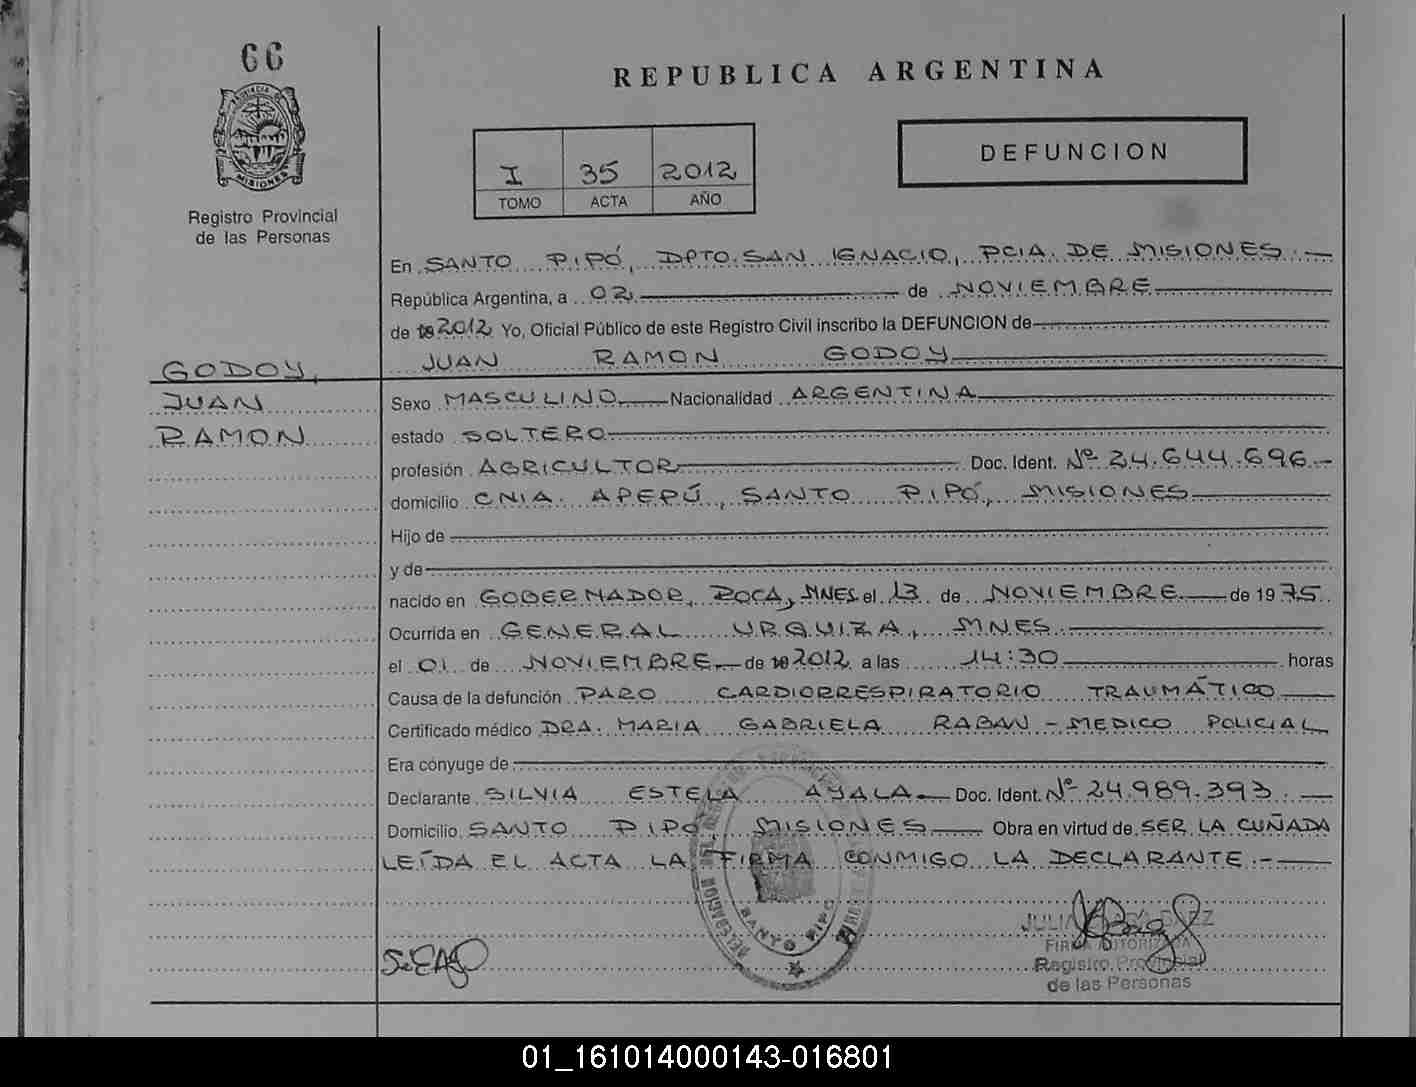 66
REPUBLICA ARGENTINA
PROVINCIA DE
MISIONES
Registro Provincial
de las Personas
I 35 2012
TOMO ACTA AÑO
DEFUNCION
En SANTO PIPÓ, DPTO. SAN IGNACIO, PCIA. DE MISIONES.-
República Argentina, a 02 de NOVIEMBRE
de 2012 Yo, Oficial Público de este Registro Civil inscribo la DEFUNCION de
JUAN RAMON GODOY
GODOY,
JUAN
RAMON
Sexo MASCULINO Nacionalidad ARGENTINA
estado SOLTERO
profesión AGRICULTOR Doc. Ident. Nº 24.644.696.-
domicilio CNIA. APEPÚ, SANTO PIPÓ, MISIONES
Hijo de
y de
nacido en GOBERNADOR ROCA, MNES el 13 de NOVIEMBRE de 1975.
Ocurrida en GENERAL URQUIZA, MNES.
el 01 de NOVIEMBRE de 2012 a las 14:30 horas
Causa de la defunción PARO CARDIORRESPIRATORIO TRAUMÁTICO
Certificado médico DRA. MARIA GABRIELA RABAN - MEDICO POLICIAL
Era cónyuge de
Declarante SILVIA ESTELA AYALA Doc. Ident. Nº 24.989.393.
Domicilio SANTO PIPÓ, MISIONES Obra en virtud de SER LA CUÑADA
LEÍDA EL ACTA LA FIRMA CONMIGO LA DECLARANTE.-
SANTO PIPO
FIRMA AUTORIZADA
Registro Provincial
de las Personas
01_161014000143-016801